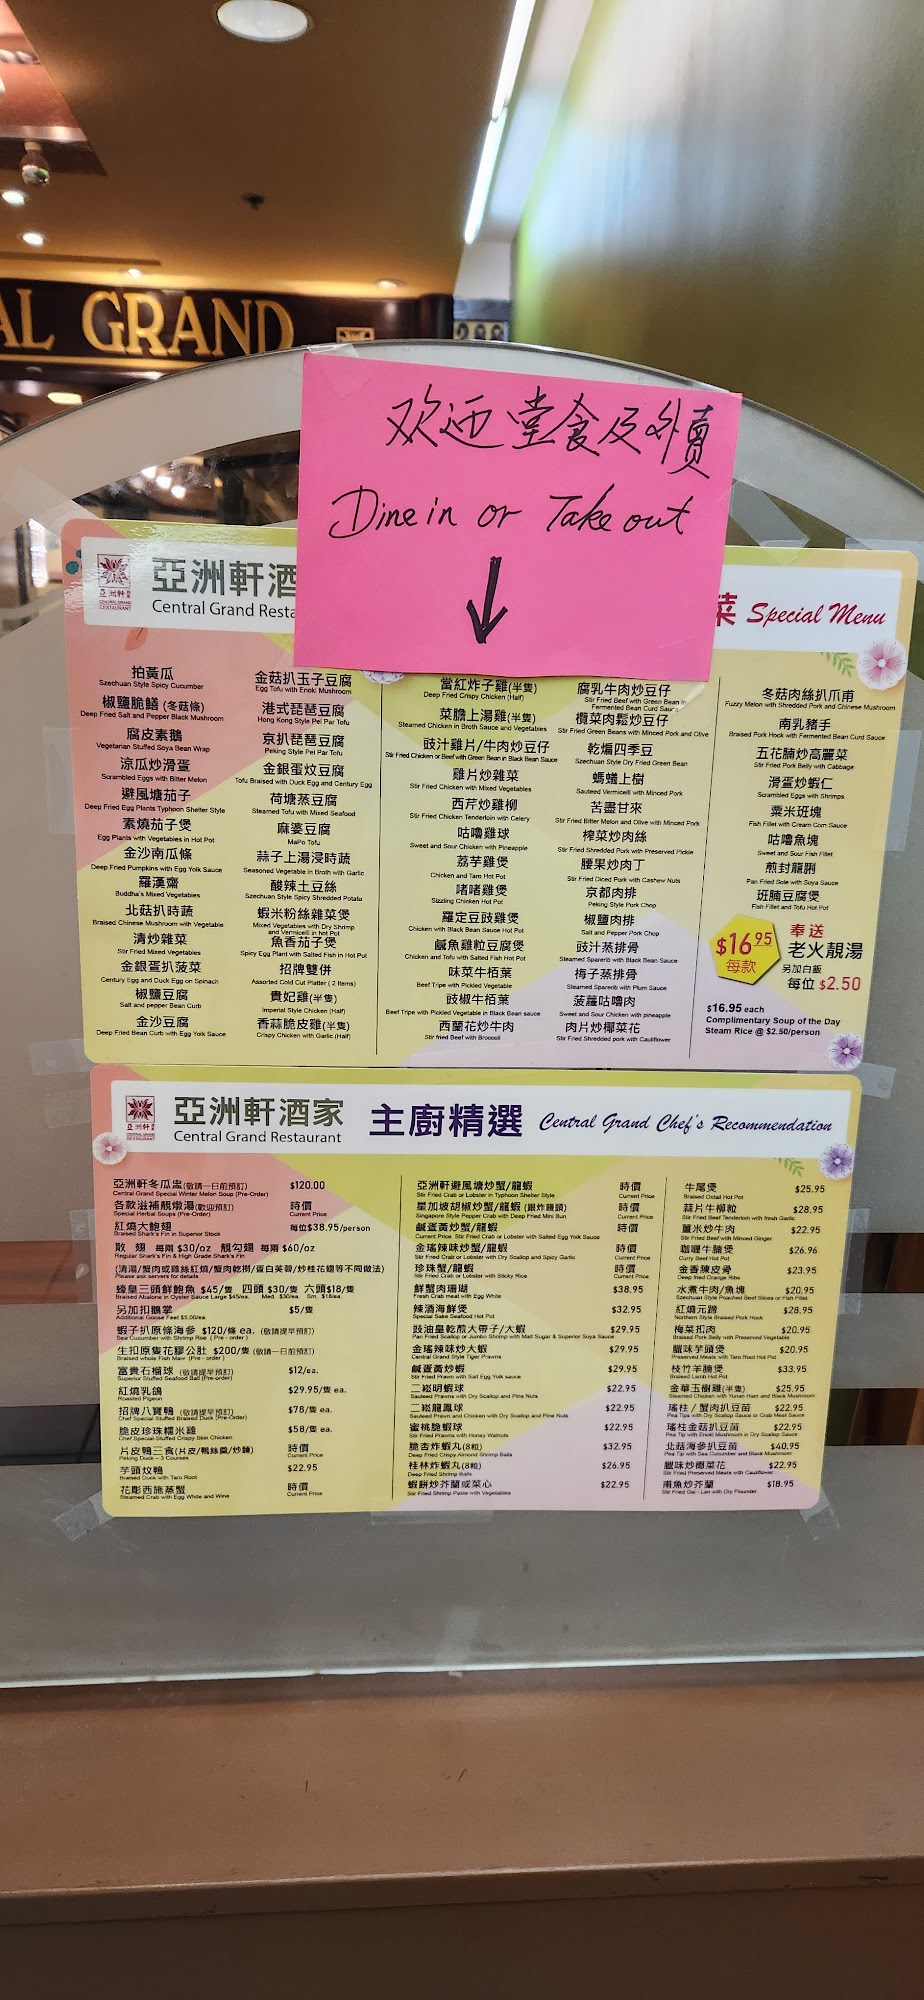 AL GRAND
欢迎堂食及外賣
Dine in or Take out
亞洲軒酒
Central Grand Resta
菜 Special Menu
拍黃瓜
Szechuan Style Spicy Cucumber
椒鹽脆鱔 (冬菇條)
Deep Fried Salt and Pepper Black Mushroom
腐皮素鵝
Vegetarian Stuffed Soya Bean Wrap
涼瓜炒滑蛋
Scrambled Eggs with Bitter Melon
避風塘茄子
Deep Fried Egg Plants Typhoon Shelter Style
素燒茄子煲
Egg Plants with Vegetables in Hot Pot
金沙南瓜條
Deep Fried Pumpkins with Egg Yolk Sauce
羅漢齋
Buddha's Mixed Vegetables
北菇扒時蔬
Braised Chinese Mushroom with Vegetable
清炒雜菜
Stir Fried Mixed Vegetables
金銀蛋扒菠菜
Century Egg and Duck Egg on Spinach
椒鹽豆腐
Salt and pepper Bean Curb
金沙豆腐
Deep Fried Bean Curb with Egg Yolk Sauce
金菇扒玉子豆腐
Egg Tofu with Enoki Mushroom
港式琵琶豆腐
Hong Kong Style Pei Par Tofu
京扒琵琶豆腐
Peking Style Pei Par Tofu
金銀蛋炆豆腐
Tofu Braised with Duck Egg and Century Egg
荷塘蒸豆腐
Steamed Tofu with Mixed Seafood
麻婆豆腐
MaPo Tofu
蒜子上湯浸時蔬
Seasoned Vegetable in Broth with Garlic
酸辣土豆絲
Szechuan Style Spicy Shredded Potato
蝦米粉絲雜菜煲
Mixed Vegetables with Dry Shrimp
and Vermicelli in hot Pot
魚香茄子煲
Spicy Egg Plant with Salted Fish in Hot Pot
招牌雙併
Assorted Cold Cut Platter ( 2 Items)
貴妃雞(半隻)
Imperial Style Chicken (Half)
香蒜脆皮雞(半隻)
Crispy Chicken with Garlic (Half)
當紅炸子雞(半隻)
Deep Fried Crispy Chicken (Half)
菜膽上湯雞(半隻)
Steamed Chicken in Broth Sauce and Vegetables
豉汁雞片/牛肉炒豆仔
Stir Fried Chicken or Beef with Green Bean in Black Bean Sauce
雞片炒雜菜
Stir Fried Chicken with Mixed Vegetables
西芹炒雞柳
Stir Fried Chicken Tenderloin with Celery
咕嚕雞球
Sweet and Sour Chicken with Pineapple
荔芋雞煲
Chicken and Taro Hot Pot
啫啫雞煲
Sizzling Chicken Hot Pot
羅定豆豉雞煲
Chicken with Black Bean Sauce Hot Pot
鹹魚雞粒豆腐煲
Chicken and Tofu with Salted Fish in Hot Pot
味菜牛栢葉
Beef Tripe with Pickled Vegetable
豉椒牛栢葉
Beef Tripe with Pickled Vegetable in Black Bean sauce
西蘭花炒牛肉
Stir fried Beef with Broccoli
腐乳牛肉炒豆仔
Stir Fried Beef with Green Bean in
Fermented Bean Curd Sauce
欖菜肉鬆炒豆仔
Stir Fried Green Beans with Minced Pork and Olive
乾煸四季豆
Szechuan Style Dry Fried Green Bean
螞蟻上樹
Sauteed Vermicelli with Minced Pork
苦盡甘來
Stir Fried Bitter Melon and Olive with Minced Pork
榨菜炒肉絲
Stir Fried Shredded Pork with Preserved Pickle
腰果炒肉丁
Stir Fried Diced Pork with Cashew Nuts
京都肉排
Peking Style Pork Chop
椒鹽肉排
Salt and Pepper Pork Chop
豉汁蒸排骨
Steamed Sparerib with Black Bean Sauce
梅子蒸排骨
Steamed Sparerib with Plum Sauce
菠蘿咕嚕肉
Sweet and Sour Chicken with pineapple
肉片炒椰菜花
Stir Fried Shredded pork with Cauliflower
冬菇肉絲扒爪甫
Fuzzy Melon with Shredded Pork and Chinese Mushroom
南乳豬手
Braised Pork Hock with Fermented Bean Curd Sauce
五花腩炒高麗菜
Stir Fried Pork Belly with Cabbage
滑蛋炒蝦仁
Scrambled Eggs with Shrimps
粟米班塊
Fish Fillet with Cream Corn Sauce
咕嚕魚塊
Sweet and Sour Fish Fillet
煎封龍脷
Pan Fried Sole with Soya Sauce
班腩豆腐煲
Fish Fillet and Tofu Hot Pot
$16.95
每款
奉送
老火靚湯
另加白飯
每位 $2.50
$16.95 each
Complimentary Soup of the Day
Steam Rice @ $2.50/person
亞洲軒酒家 主廚精選 Central Grand Chef's Recommendation
Central Grand Restaurant
亞洲軒冬瓜盅(敬請一日前預訂) $120.00
Central Grand Special Winter Melon Soup (Pre-Order)
各款滋補靚燉湯(歡迎預訂) 時價
Special Herbal Soups (Pre-Order) Current Price
紅燒大鮑翅 每位$38.95/person
Braised Shark's Fin in Superior Stock
散 翅 每兩 $30/oz 靚勾翅 每兩 $60/oz
Regular Shark's Fin & High Grade Shark's Fin
(清湯/蟹肉或雞絲紅燒/蟹肉乾撈/蛋白芙蓉/炒桂花翅等不同做法)
Please ask servers for details
蠔皇三頭鮮鮑魚 $45/隻 四頭 $30/隻 六頭$18/隻
Braised Abalone in Oyster Sauce Large $45/ea. Med. $30/ea. Sm. $18/ea.
另加扣鵝掌 $5/隻
Additional Goose Feet $5.00/ea.
蝦子扒原條海參 $120/條 ea. (敬請提早預訂)
Sea Cucumber with Shrimp Roe ( Pre - order )
生扣原隻花膠公肚 $200/隻 (敬請一日前預訂)
Braised whole Fish Maw (Pre - order )
富貴石榴球 (敬請提早預訂) $12/ea.
Superior Stuffed Seafood Ball (Pre-order)
紅燒乳鴿 $29.95/隻 ea.
Roasted Pigeon
招牌八寶鴨 (敬請提早預訂) $78/隻 ea.
Chef Special Stuffed Braised Duck (Pre-Order)
脆皮珍珠糯米雞 $58/隻 ea.
Chef Special-Stuffed Crispy Skin Chicken
片皮鴨三食(片皮/鴨絲羹/炒麵) 時價
Peking Duck – 3 Courses Current Price
芋頭炆鴨 $22.95
Braised Duck with Taro Root
花彫西施蒸蟹 時價
Steamed Crab with Egg White and Wine Current Price
亞洲軒避風塘炒蟹/龍蝦 時價
Stir Fried Crab or Lobster in Typhoon Shelter Style Current Price
星加坡胡椒炒蟹/龍蝦 (跟炸饅頭) 時價
Singapore Style Pepper Crab with Deep Fried Mini Bun Current Price
鹹蛋黃炒蟹/龍蝦 時價
Current Price Stir Fried Crab or Lobster with Salted Egg Yolk Sauce Current Price
金瑤辣味炒蟹/龍蝦 時價
Stir Fried Crab or Lobster with Dry Scallop and Spicy Garlic Current Price
珍珠蟹/龍蝦 時價
Stir Fried Crab or Lobster with Sticky Rice Current Price
鮮蟹肉珊瑚 $38.95
Fresh Crab meat with Egg White
辣酒海鮮煲 $32.95
Special Sake Seafood Hot Pot
豉油皇乾煎大帶子/大蝦 $29.95
Pan Fried Scallop or Jumbo Shrimp with Malt Sugar & Superior Soya Sauce
金瑤辣味炒大蝦 $29.95
Central Grand Style Tiger Prawns
鹹蛋黃炒蝦 $29.95
Stir Fried Prawn with Salt Egg Yolk sauce
二崧明蝦球 $22.95
Sauteed Prawns with Dry Scallop and Pine Nuts
二崧龍鳳球 $22.95
Sauteed Prawn and Chicken with Dry Scallop and Pine Nuts
蜜桃脆蝦球 $22.95
Stir Fried Prawns with Honey Walnuts
脆杏炸蝦丸(8粒) $32.95
Deep Fried Crispy Almond Shrimp Balls
桂林炸蝦丸(8粒) $26.95
Deep Fried Shrimp Balls
蝦餅炒芥蘭或菜心 $22.95
Stir Fried Shrimp Paste with Vegetables
牛尾煲 $25.95
Braised Oxtail Hot Pot
蒜片牛柳粒 $28.95
Stir Fried Beef Tenderloin with fresh Garlic
薑米炒牛肉 $22.95
Stir Fried Beef with Minced Ginger
咖喱牛腩煲 $26.96
Curry Beef Hot Pot
金香陳皮骨 $23.95
Deep fried Orange Ribs
水煮牛肉/魚塊 $20.95
Szechuan Style Poached Beef Slices or Fish Fillet
紅燒元蹄 $28.95
Northern Style Braised Pork Hock
梅菜扣肉 $20.95
Braised Pork Belly with Preserved Vegetable
臘味芋頭煲 $20.95
Preserved Meats with Taro Root Hot Pot
枝竹羊腩煲 $33.95
Braised Lamb Hot Pot
金華玉樹雞(半隻) $25.95
Steamed Chicken with Yunan Ham and Black Mushroom
瑤柱 / 蟹肉扒豆苗 $22.95
Pea Tips with Dry Scallop Sauce or Crab Meat Sauce
瑤柱金菇扒豆苗 $22.95
Pea Tip with Enoki Mushroom in Dry Scallop Sauce
北菇海參扒豆苗 $40.95
Pea Tip with Sea Cucumber and Black Mushroom
臘味炒椰菜花 $22.95
Stir Fried Preserved Meats with Cauliflower
甫魚炒芥蘭 $18.95
Stir Fried Gai - Lan with Dry Flounder